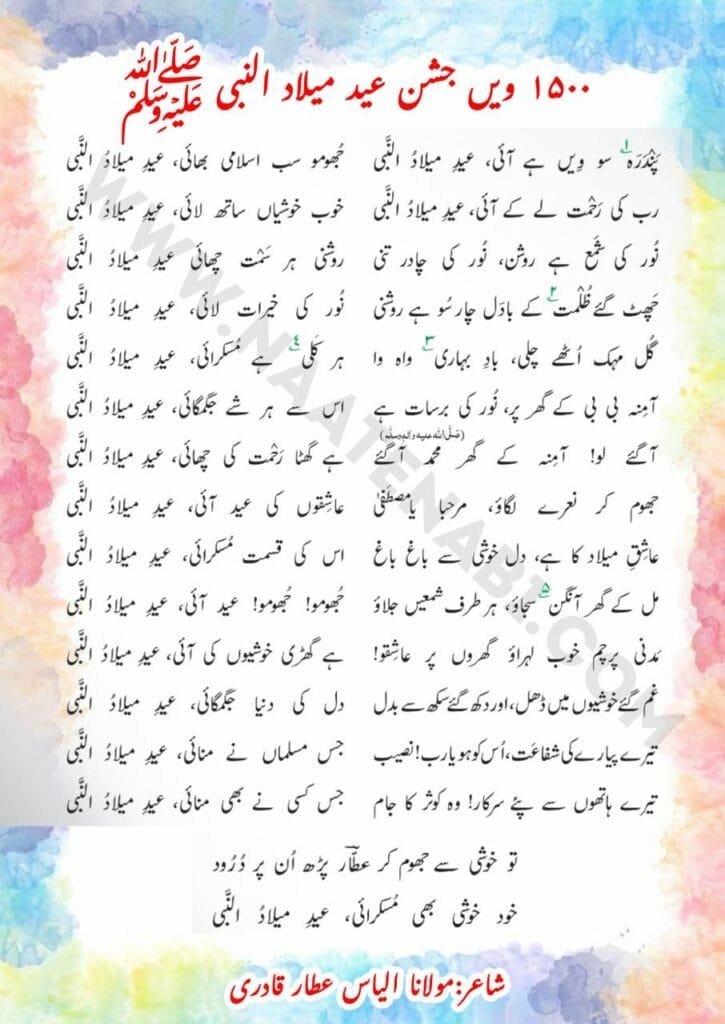 ۱۵۰۰ ویں جشن عید میلاد النبی ﷺ
پَنْدَرَہ۱ سو وِیں ہے آئی، عیدِ میلادُ النَّبی جُھومو سب اسلامی بھائی، عیدِ میلادُ النَّبی
رب کی رَحْمت لے کے آئی، عیدِ میلادُ النَّبی خوب خوشیاں ساتھ لائی، عیدِ میلادُ النَّبی
نُور کی شَمْع ہے روشن، نُور کی چادر تنی روشنی ہر سَمْت چھائی عیدِ میلادُ النَّبی
چَھٹ گئے ظُلْمت۲ کے بادَل چار سُو ہے روشنی نُور کی خیرات لائی، عیدِ میلادُ النَّبی
گُل مہک اُٹھے چلی، بادِ بہاری۳ واہ وا ہر کَلی۴ ہے مُسکرائی، عیدِ میلادُ النَّبی
آمِنہ بی بی کے گھر پر، نُور کی برسات ہے اس سے ہر شے جگمگائی، عیدِ میلادُ النَّبی
آگئے لو! آمِنہ کے گھر محمد (صَلَّی اللہ علیہ واٰلہٖ وسلَّم) آگئے ہے گھٹا رَحْمت کی چھائی، عیدِ میلادُ النَّبی
جھوم کر نعرے لگاؤ، مرحبا یا مصطفٰی عاشِقوں کی عید آئی، عیدِ میلادُ النَّبی
عاشِقِ میلاد کا ہے، دل خوشی سے باغ باغ اس کی قسمت مُسکرائی، عیدِ میلادُ النَّبی
مل کے گھر آنگن۵ سجاؤ، ہر طرف شمعیں جلاؤ جُھومو! جُھومو! عید آئی، عیدِ میلادُ النَّبی
مَدنی پرچم خوب لہراؤ گھروں پر عاشقو! ہے گھڑی خوشیوں کی آئی، عیدِ میلادُ النَّبی
غم گئے خوشیوں میں ڈھل، اور دکھ گئے سکھ سے بدل دل کی دنیا جگمگائی، عیدِ میلادُ النَّبی
تیرے پیارے کی شفاعَت، اُس کو ہو یارب! نصیب جس مسلماں نے منائی، عیدِ میلادُ النَّبی
تیرے ہاتھوں سے پئے سرکار! وہ کوثر کا جام جس کسی نے بھی منائی، عیدِ میلادُ النَّبی
تو خوشی سے جھوم کر عطّاؔر پڑھ اُن پر دُرُود
خود خوشی بھی مُسکرائی، عیدِ میلادُ النَّبی
شاعر: مولانا الیاس عطار قادری
WWW.NAATENABI.COM